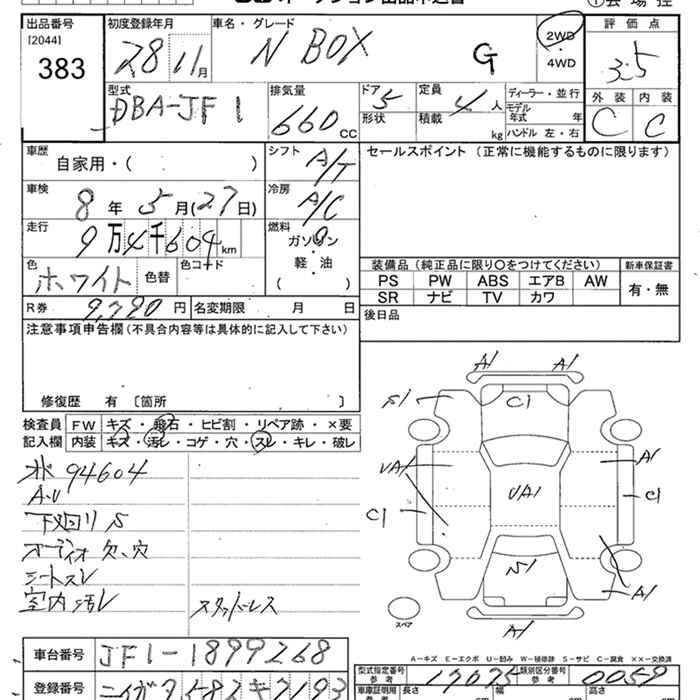 ① 会場控
出品番号 [2044] 383
初度登録年月 28 11月
車名・グレード N BOX G
2WD・4WD
評価点 3.5
外装 C 内装 C
型式 DBA-JF1
排気量 660 CC
ドア 5 形状
定員 4人 積載 kg
ディーラー・並行
モデル年式 年
ハンドル 左・右
車歴 自家用・( )
シフト A/T
車検 8年 5月(27日)
冷房 A/C
走行 9万4千604km
燃料 ガソリン・軽・油 ( )
色 ホワイト 色替 色コード
R券 9,790円 名変期限 月 日
セールスポイント (正常に機能するものに限ります)
装備品 (純正品に限り〇をつけてください) 新車保証書
PS PW ABS エアB AW 有・無
SR ナビ TV カワ
後日品
注意事項申告欄(不具合内容等は具体的に記入して下さい)
修復歴 有 〔箇所 〕
検査員 FW キズ・飛石・ヒビ割・リペア跡・×要
記入欄 内装 キズ・汚レ・コゲ・穴・スレ・キレ・破レ
94604
下回りS
オーディオ欠、穴
シートスレ
室内汚レ スタッドレス
A1 A1
C1
A1
C1
C1
A1
S1
A1
スペア
A-キズ E-エクボ U-凹み W-補修跡 S-サビ C-腐食 ××-交換済
車台番号 JF1-1899268
型式指定番号 参考 類別区分番号 参考 0059
登録番号
車庫証明用 参考 長さ cm 幅 cm 高さ